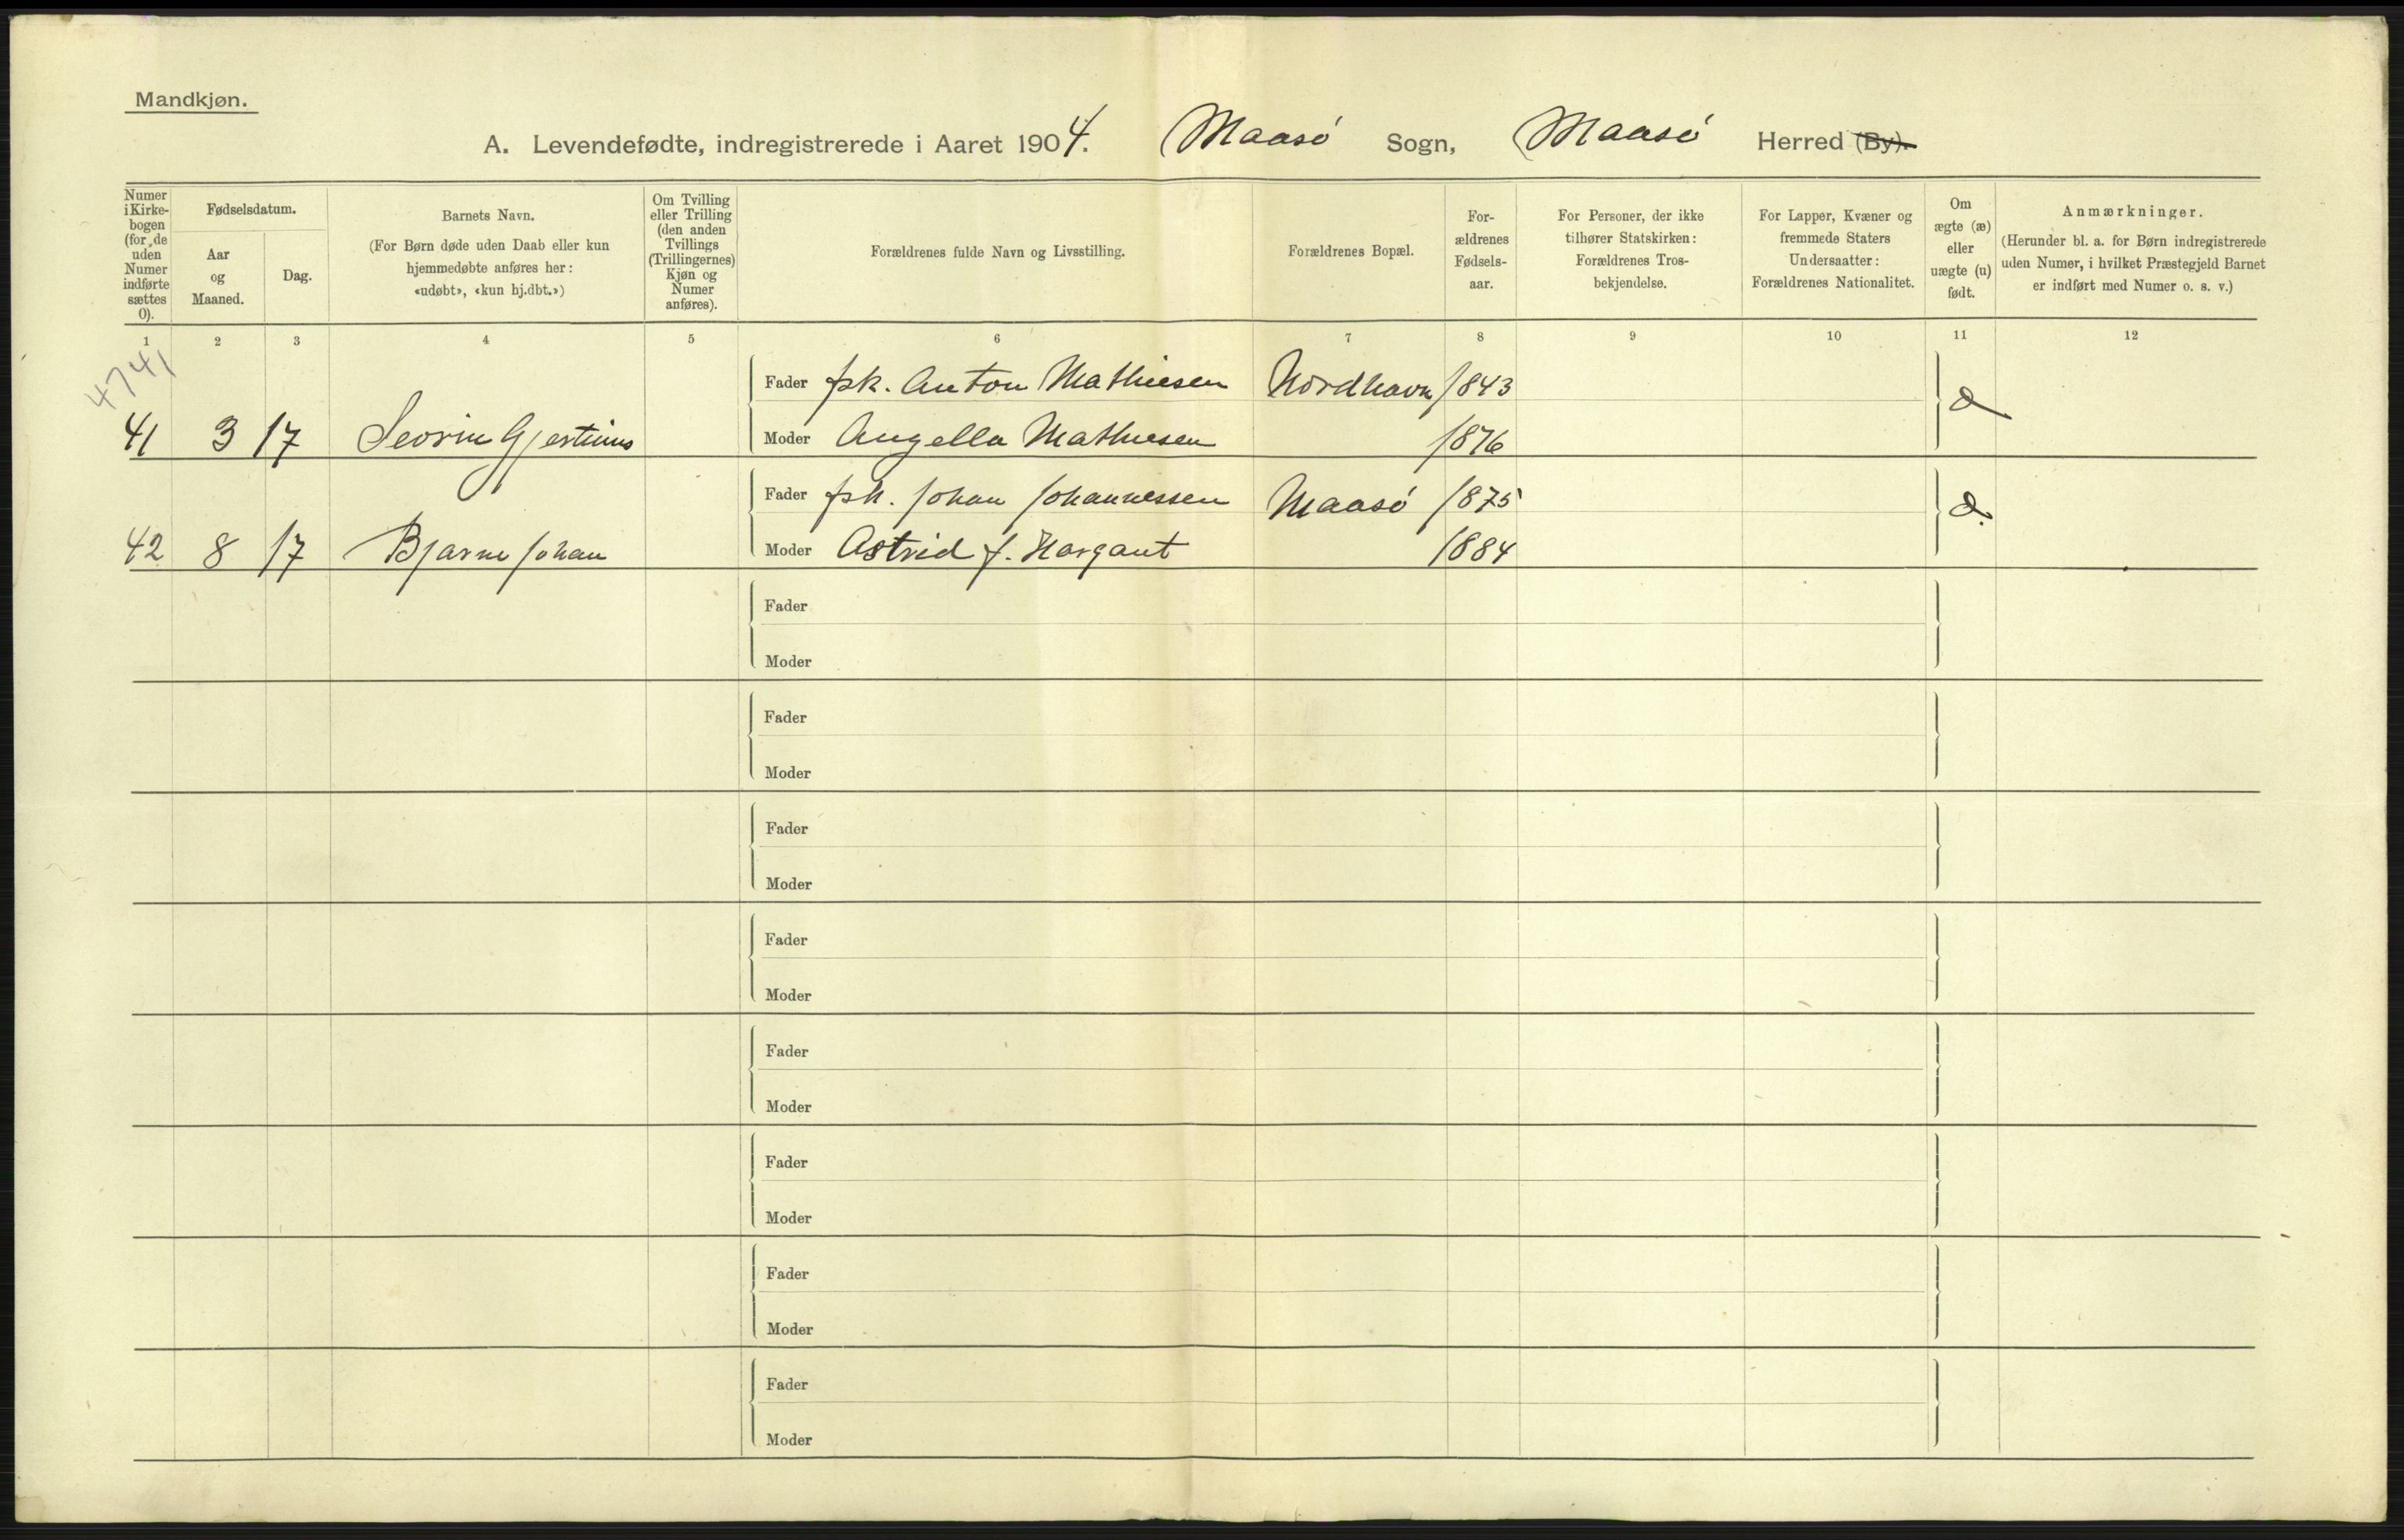 Mandkjøn.
A. Levendefødte, indregistrerede i Aaret 1904. Maasø Sogn, Maasø Herred (By).
Numer i Kirke-bogen (for de uden Numer indførte sættes 0).
Fødselsdatum.
Aar og Maaned.
Dag.
Barnets Navn.
(For Børn døde uden Daab eller kun
hjemmedøbte anføres her:
«udøbt», «kun hj.dbt.»)
Om Tvilling
eller Trilling
(den anden
Tvillings
(Trillingernes)
Kjøn og
Numer
anføres).
Forældrenes fulde Navn og Livsstilling.
Forældrenes Bopæl.
For-
ældrenes
Fødsels-
aar.
For Personer, der ikke
tilhører Statskirken:
Forældrenes Tros-
bekjendelse.
For Lapper, Kvæner og
fremmede Staters
Undersaatter:
Forældrenes Nationalitet.
Om
ægte (æ)
eller
uægte (u)
født.
Anmærkninger.
(Herunder bl. a. for Børn indregistrerede
uden Numer, i hvilket Præstegjeld Barnet
er indført med Numer o. s. v.)
1 2 3 4 5 6 7 8 9 10 11 12
4741
Fader fsk. Anton Mathiesen Nordhavn 1843 æ
41 3 17 Sevrin Gjertinus Moder Angella Mathiesen 1876
Fader fsk. Johan Johannessen Maasø 1875 æ.
42 8 17 Bjarne Johan Moder Astrid f. Hargaut 1884
Fader
Moder
Fader
Moder
Fader
Moder
Fader
Moder
Fader
Moder
Fader
Moder
Fader
Moder
Fader
Moder